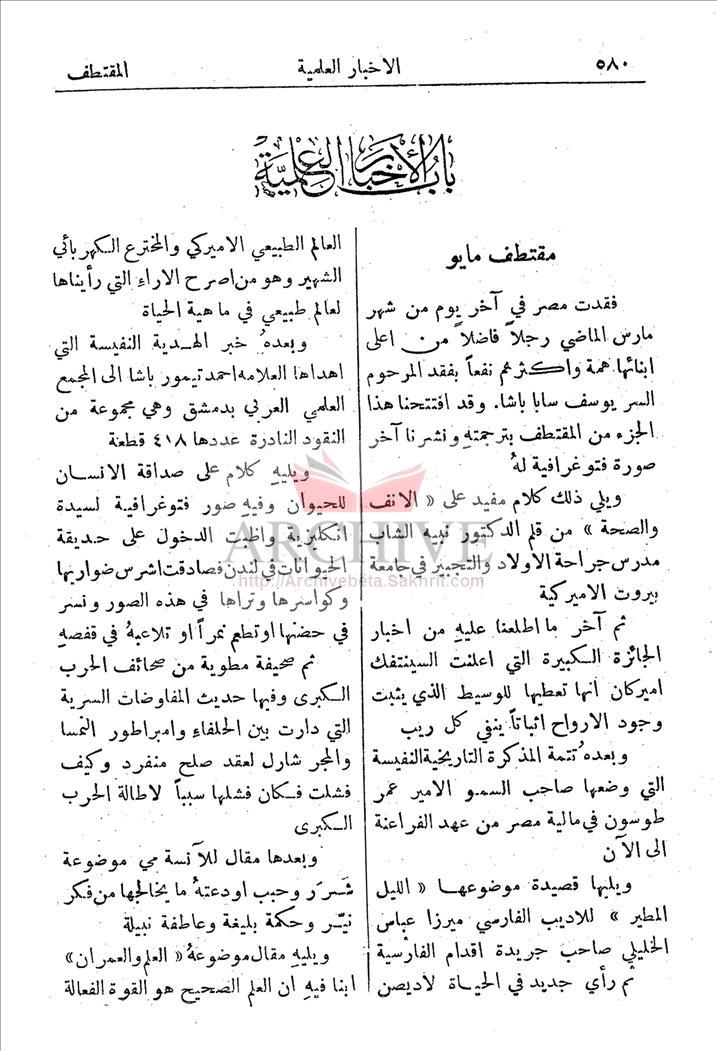 ٥٨٠
الاخبار العلمية
المقتطف
باب الأخبار العلمية
مقتطف مايو
فقدت مصر في آخر يوم من شهر
مارس الماضي رجلاً فاضلاً من اعلى
ابنائها همة واكثرهم نفعاً بفقد المرحوم
السر يوسف سابا باشا. وقد افتتحنا هذا
الجزء من المقتطف بترجمته ونشرنا آخر
صورة فتوغرافية لهُ
ويلي ذلك كلام مفيد على « الانف
والصحة » من قلم الدكتور نبيه الشاب
مدرس جراحة الاولاد والتجبير في جامعة
بيروت الاميركية
ثم آخر ما اطلعنا عليهِ من اخبار
الجائزة الكبيرة التي اعلنت السينتفك
اميركان أنها تعطيها للوسيط الذي يثبت
وجود الارواح اثباتاً ينفي كل ريب
وبعدهُ تتمة المذكرة التاريخية النفيسة
التي وضعها صاحب السمو الامير عمر
طوسون في مالية مصر من عهد الفراعنة
الى الآن
ويليها قصيدة موضوعها « الليل
المطير » للاديب الفارسي ميرزا عباس
الخليلي صاحب جريدة اقدام الفارسية
ثم رأي جديد في الحياة لاديصن
العالم الطبيعي الاميركي والمخترع الكهربائي
الشهير وهو من اصرح الاراء التي رأيناها
لعالم طبيعي في ماهية الحياة
وبعدهُ خبر الهدية النفيسة التي
اهداها العلامه احمد تيمور باشا الى المجمع
العلمي العربي بدمشق وهي مجموعة من
النقود النادرة عددها ٤١٨ قطعة
ويليهِ كلام على صداقة الانسان
للحيوان وفيهِ صور فتوغرافية لسيدة
انكليزية واظبت الدخول على حديقة
الحيوانات في لندن فصادقت اشرس ضواريها
وكواسرها وتراها في هذه الصور ونسر
في حضنها او تطعم نمراً او تلاعبهُ في قفصهِ
ثم صحيفة مطوية من صحائف الحرب
الكبرى وفيها حديث المفاوضات السرية
التي دارت بين الحلفاء وامبراطور النمسا
والمجر شارل لعقد صلح منفرد وكيف
فشلت فكان فشلها سبباً لاطالة الحرب
الكبرى
وبعدها مقال للآنسة مي موضوعة
شرَر وحبب اودعتهُ ما يخالجها من فكر
نيّر وحكمة بليغة وعاطفة نبيلة
ويليهِ مقال موضوعهُ « العلم والعمران »
ابنا فيهِ ان العلم الصحيح هو القوة الفعالة
ARCHIVE
http://Archivebeta.Sakhrit.com